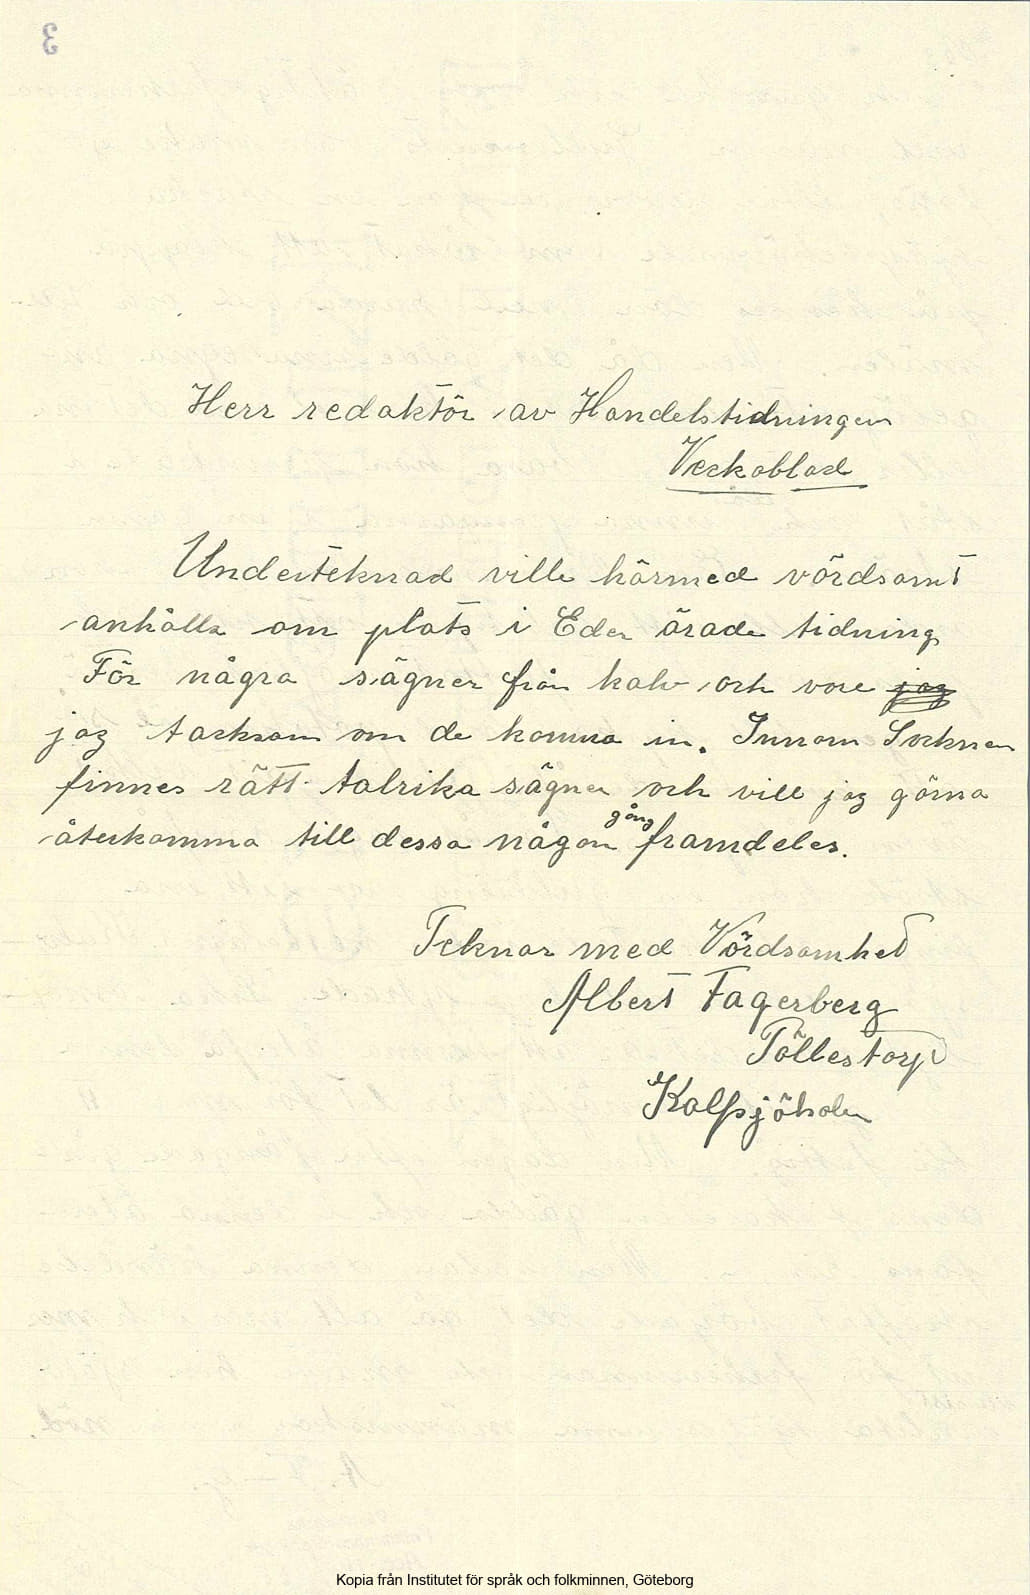 3
Herr redaktör av Handelstidningen
Veckoblad
Underteknad ville härmed vördsamt
anhålla om plats i Eder ärade tidning
För några sägner från kalv och vore jag
jag tacksam om de komma in. Innom Socknen
finnes rätt talrika sägner och vill jag gärna
återkomma till dessa någon gång framdeles.
Teknar med Vördsamhet
Albert Fagerberg
Töllestorp
Kalfsjöholm
Kopia från Institutet för språk och folkminnen, Göteborg